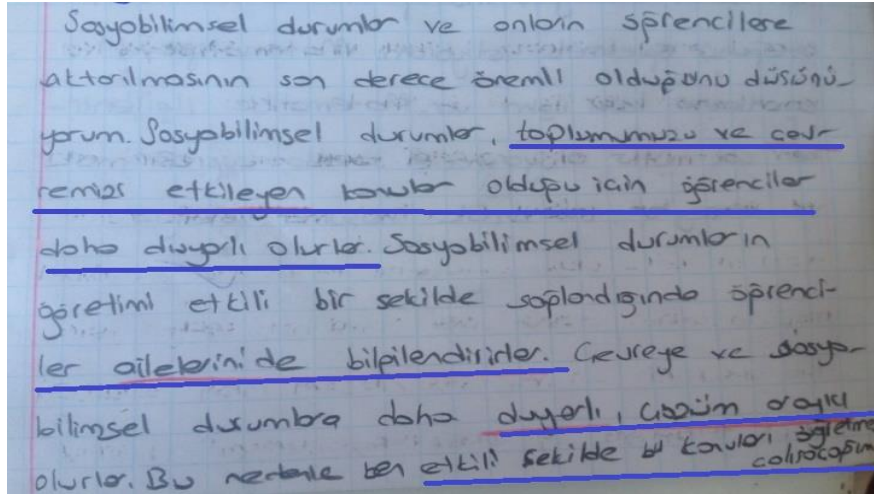 Sosyobilimsel durumlar ve onların öğrencilere
aktarılmasının son derece önemli olduğunu düşünü-
yorum. Sosyobilimsel durumlar, toplumumuzu ve çev-
remizi etkileyen konular olduğu için öğrenciler
daha duyarlı olurlar. Sosyobilimsel durumların
öğretimi etkili bir şekilde sağlandığında öğrenci-
ler ailelerini de bilgilendirirler. Çevreye ve sosyo-
bilimsel durumlara daha duyarlı, çözüm arayıcı
olurlar. Bu nedenle ben etkili şekilde bu konuları öğretme
çalışacağım